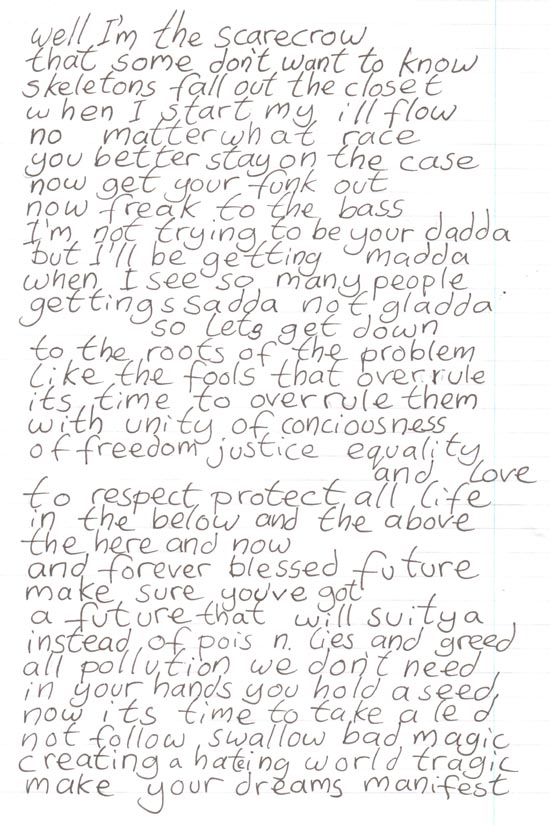 well I'm the scarecrow
that some don't want to know
skeletons fall out the closet
when I start my ill flow
no matter what race
you better stay on the case
now get your funk out
now freak to the bass
I'm not trying to be your dadda
but I'll be getting madda
when I see so many people
getting sadda not gladda.
so lets get down
to the roots of the problem
like the fools that overrule
its time to overrule them
with unity of conciousness
of freedom justice equality
and love
to respect protect all life
in the below and the above
the here and now
and forever blessed future
make sure you've got
a future that will suitya
instead of pois n. lies and greed
all pollution we don't need
in your hands you hold a seed,
now its time to take a le d
not follow swallow bad magic
creating a hating world tragic
make your dreams manifest